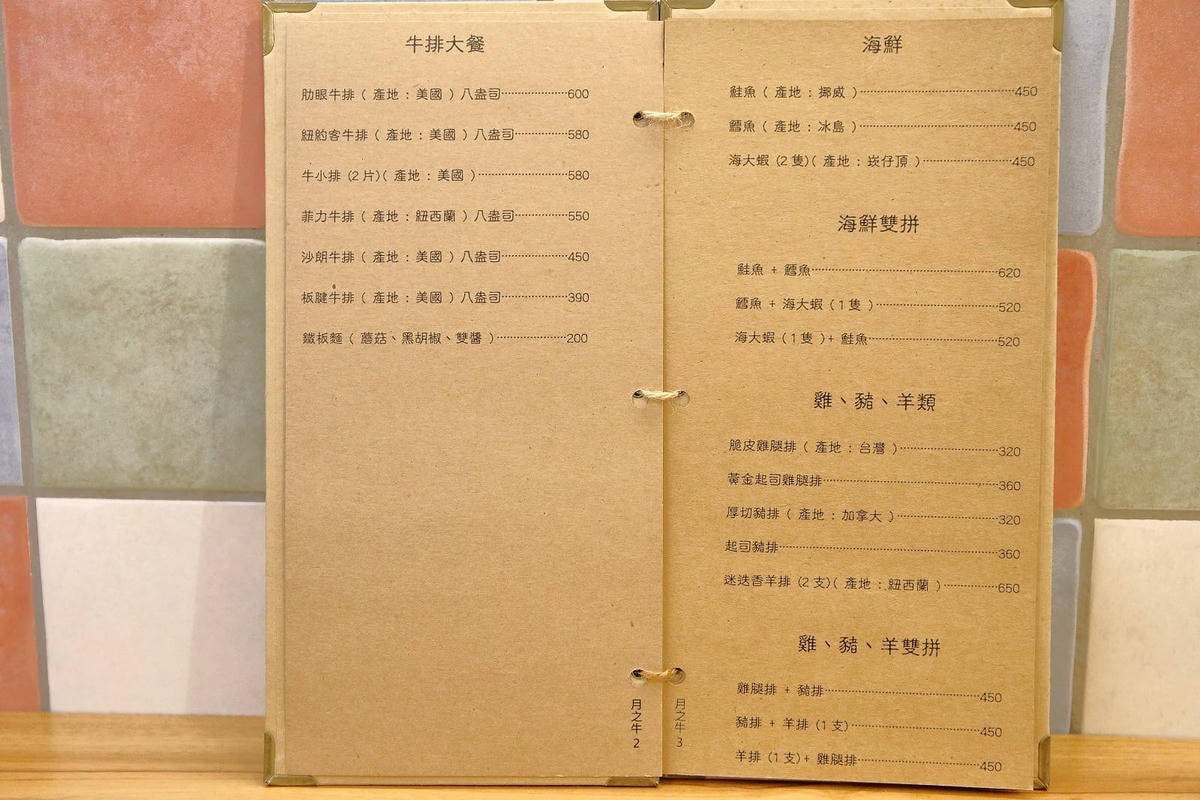 牛排大餐
肋眼牛排 ( 產地 : 美國 ) 八盎司⋯⋯⋯⋯600
紐約客牛排 ( 產地 : 美國 ) 八盎司⋯⋯⋯⋯580
牛小排 (2片)( 產地 : 美國 )⋯⋯⋯⋯580
菲力牛排 ( 產地 : 紐西蘭 ) 八盎司⋯⋯⋯⋯550
沙朗牛排 ( 產地 : 美國 ) 八盎司⋯⋯⋯⋯450
板腱牛排 ( 產地 : 美國 ) 八盎司⋯⋯⋯⋯390
鐵板麵 ( 蘑菇、黑胡椒、雙醬 )⋯⋯⋯⋯200
月之牛 2
海鮮
鮭魚 ( 產地 : 挪威 )⋯⋯⋯⋯450
鱈魚 ( 產地 : 冰島 )⋯⋯⋯⋯450
海大蝦 (2隻)( 產地 : 崁仔頂 )⋯⋯⋯⋯450
海鮮雙拼
鮭魚 + 鱈魚⋯⋯⋯⋯620
鱈魚 + 海大蝦 (1隻 )⋯⋯⋯⋯520
海大蝦 (1隻 )+ 鮭魚⋯⋯⋯⋯520
雞、豬、羊類
脆皮雞腿排 ( 產地 : 台灣 )⋯⋯⋯⋯320
黃金起司雞腿排⋯⋯⋯⋯360
厚切豬排 ( 產地 : 加拿大 )⋯⋯⋯⋯320
起司豬排⋯⋯⋯⋯360
迷迭香羊排 (2支)( 產地 : 紐西蘭 )⋯⋯⋯⋯650
雞、豬、羊雙拼
雞腿排 + 豬排⋯⋯⋯⋯450
豬排 + 羊排 (1支)⋯⋯⋯⋯450
羊排 (1支)+ 雞腿排⋯⋯⋯⋯450
月之牛 3